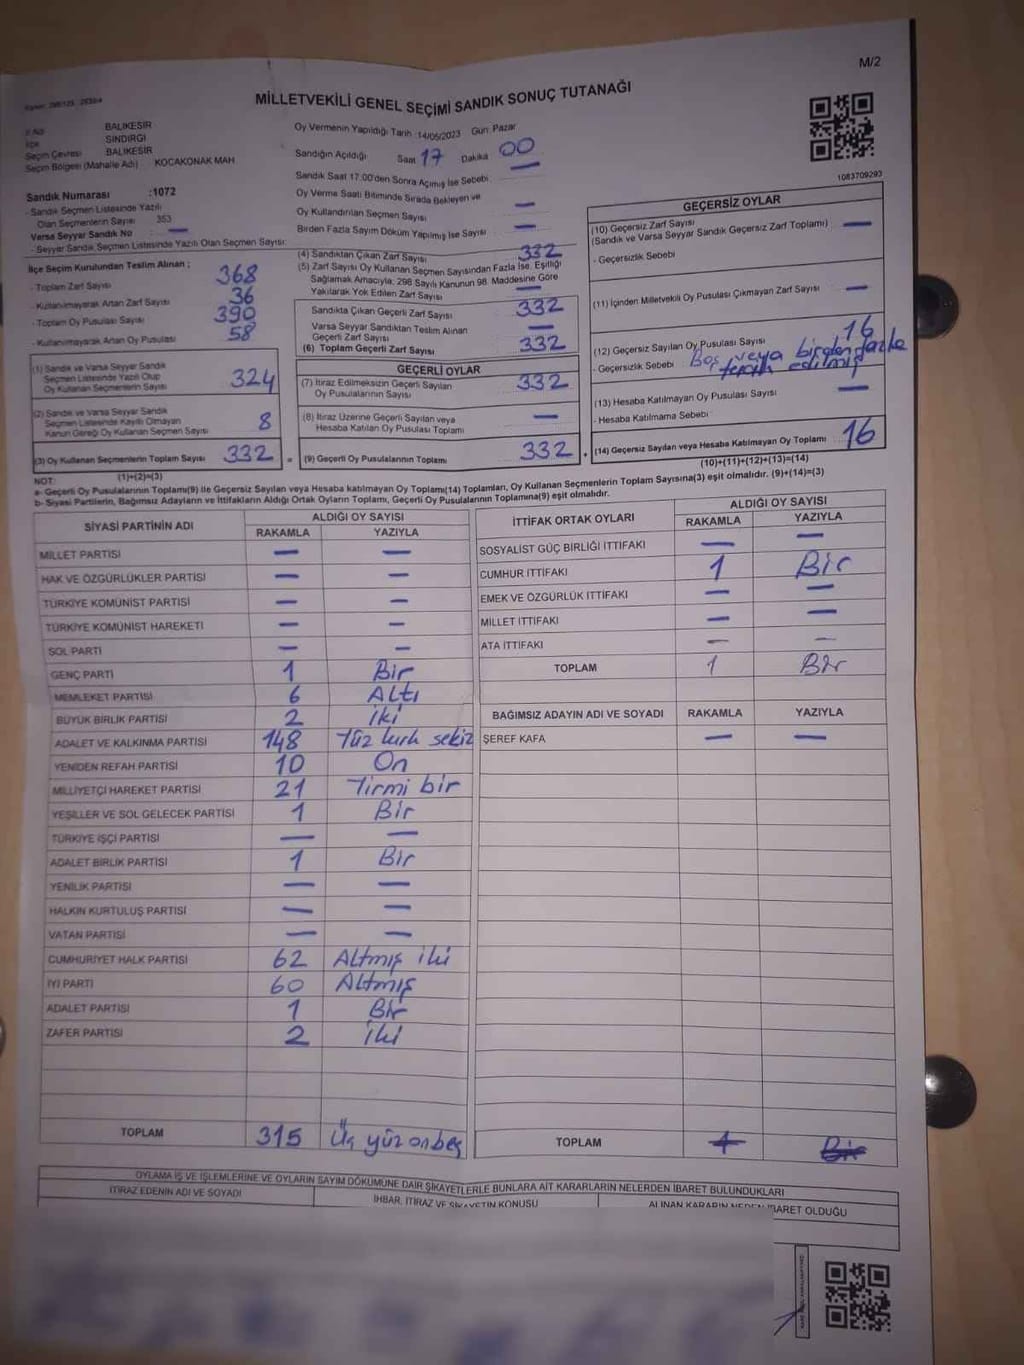 M/2
MİLLETVEKİLİ GENEL SEÇİMİ SANDIK SONUÇ TUTANAĞI
İl Adı BALIKESİR
İlçe SINDIRGI
Seçim Çevresi BALIKESİR
Seçim Bölgesi (Mahalle Adı) KOCAKONAK MAH
Sandık Numarası :1072
- Sandık Seçmen Listesinde Yazılı
Olan Seçmenlerin Sayısı 353
Varsa Seyyar Sandık No —
- Seyyar Sandık Seçmen Listesinde Yazılı Olan Seçmen Sayısı:
Oy Vermenin Yapıldığı Tarih :14/05/2023 Gün: Pazar
Sandığın Açıldığı Saat 17 Dakika 00
Sandık Saat 17:00'den Sonra Açılmış İse Sebebi —
Oy Verme Saati Bitiminde Sırada Bekleyen ve
Oy Kullandırılan Seçmen Sayısı —
Birden Fazla Sayım Döküm Yapılmış İse Sayısı —
1083709293
İlçe Seçim Kurulundan Teslim Alınan ;
- Toplam Zarf Sayısı 368
- Kullanılmayarak Artan Zarf Sayısı 36
- Toplam Oy Pusulası Sayısı 390
- Kullanılmayarak Artan Oy Pusulası 58
(1) Sandık ve Varsa Seyyar Sandık
Seçmen Listesinde Yazılı Olup
Oy Kullanan Seçmenlerin Sayısı 324
(2) Sandık ve Varsa Seyyar Sandık
Seçmen Listesinde Kayıtlı Olmayan
Kanun Gereği Oy Kullanan Seçmen Sayısı 8
(3) Oy Kullanan Seçmenlerin Toplam Sayısı 332 =
(4) Sandıktan Çıkan Zarf Sayısı 332
(5) Zarf Sayısı Oy Kullanan Seçmen Sayısından Fazla İse, Eşitliği
Sağlamak Amacıyla; 298 Sayılı Kanunun 98. Maddesine Göre
Yakılarak Yok Edilen Zarf Sayısı —
Sandıkta Çıkan Geçerli Zarf Sayısı 332
Varsa Seyyar Sandıktan Teslim Alınan
Geçerli Zarf Sayısı —
(6) Toplam Geçerli Zarf Sayısı 332
GEÇERLİ OYLAR
(7) İtiraz Edilmeksizin Geçerli Sayılan
Oy Pusulalarının Sayısı 332
(8) İtiraz Üzerine Geçerli Sayılan veya
Hesaba Katılan Oy Pusulası Toplamı —
(9) Geçerli Oy Pusulalarının Toplamı 332
GEÇERSİZ OYLAR
(10) Geçersiz Zarf Sayısı
(Sandık ve Varsa Seyyar Sandık Geçersiz Zarf Toplamı) —
- Geçersizlik Sebebi
(11) İçinden Milletvekili Oy Pusulası Çıkmayan Zarf Sayısı —
(12) Geçersiz Sayılan Oy Pusulası Sayısı 16
- Geçersizlik Sebebi Boş veya birden fazla
tercih edilmiş
(13) Hesaba Katılmayan Oy Pusulası Sayısı —
- Hesaba Katılmama Sebebi
(14) Geçersiz Sayılan veya Hesaba Katılmayan Oy Toplamı 16
(10)+(11)+(12)+(13)=(14)
NOT: (1)+(2)=(3)
a- Geçerli Oy Pusulalarının Toplamı(9) ile Geçersiz Sayılan veya Hesaba katılmayan Oy Toplamı(14) Toplamları, Oy Kullanan Seçmenlerin Toplam Sayısına(3) eşit olmalıdır. (9)+(14)=(3)
b- Siyasi Partilerin, Bağımsız Adayların ve İttifakların Aldığı Ortak Oyların Toplamı, Geçerli Oy Pusulalarının Toplamına(9) eşit olmalıdır.
SİYASİ PARTİNİN ADI ALDIĞI OY SAYISI
RAKAMLA YAZIYLA
MİLLET PARTİSİ — —
HAK VE ÖZGÜRLÜKLER PARTİSİ — —
TÜRKİYE KOMÜNİST PARTİSİ — —
TÜRKİYE KOMÜNİST HAREKETİ — —
SOL PARTİ — —
GENÇ PARTİ 1 Bir
MEMLEKET PARTİSİ 6 Altı
BÜYÜK BİRLİK PARTİSİ 2 iki
ADALET VE KALKINMA PARTİSİ 148 Yüz kırk sekiz
YENİDEN REFAH PARTİSİ 10 On
MİLLİYETÇİ HAREKET PARTİSİ 21 Yirmi bir
YEŞİLLER VE SOL GELECEK PARTİSİ 1 Bir
TÜRKİYE İŞÇİ PARTİSİ — —
ADALET BİRLİK PARTİSİ 1 Bir
YENİLİK PARTİSİ — —
HALKIN KURTULUŞ PARTİSİ — —
VATAN PARTİSİ — —
CUMHURİYET HALK PARTİSİ 62 Altmış iki
İYİ PARTİ 60 Altmış
ADALET PARTİSİ 1 Bir
ZAFER PARTİSİ 2 iki
TOPLAM 315 Üç yüz on beş
İTTİFAK ORTAK OYLARI ALDIĞI OY SAYISI
RAKAMLA YAZIYLA
SOSYALİST GÜÇ BİRLİĞİ İTTİFAKI — —
CUMHUR İTTİFAKI 1 Bir
EMEK VE ÖZGÜRLÜK İTTİFAKI — —
MİLLET İTTİFAKI — —
ATA İTTİFAKI — —
TOPLAM 1 Bir
BAĞIMSIZ ADAYIN ADI VE SOYADI RAKAMLA YAZIYLA
ŞEREF KAFA — —
TOPLAM 1 Bir
OYLAMA İŞ VE İŞLEMLERİNE VE OYLARIN SAYIM DÖKÜMÜNE DAİR ŞİKAYETLERLE BUNLARA AİT KARARLARIN NELERDEN İBARET BULUNDUKLARI
İTİRAZ EDENİN ADI VE SOYADI
İHBAR, İTİRAZ VE ŞİKAYETİN KONUSU
ALINAN KARARIN NEDEN İBARET OLDUĞU